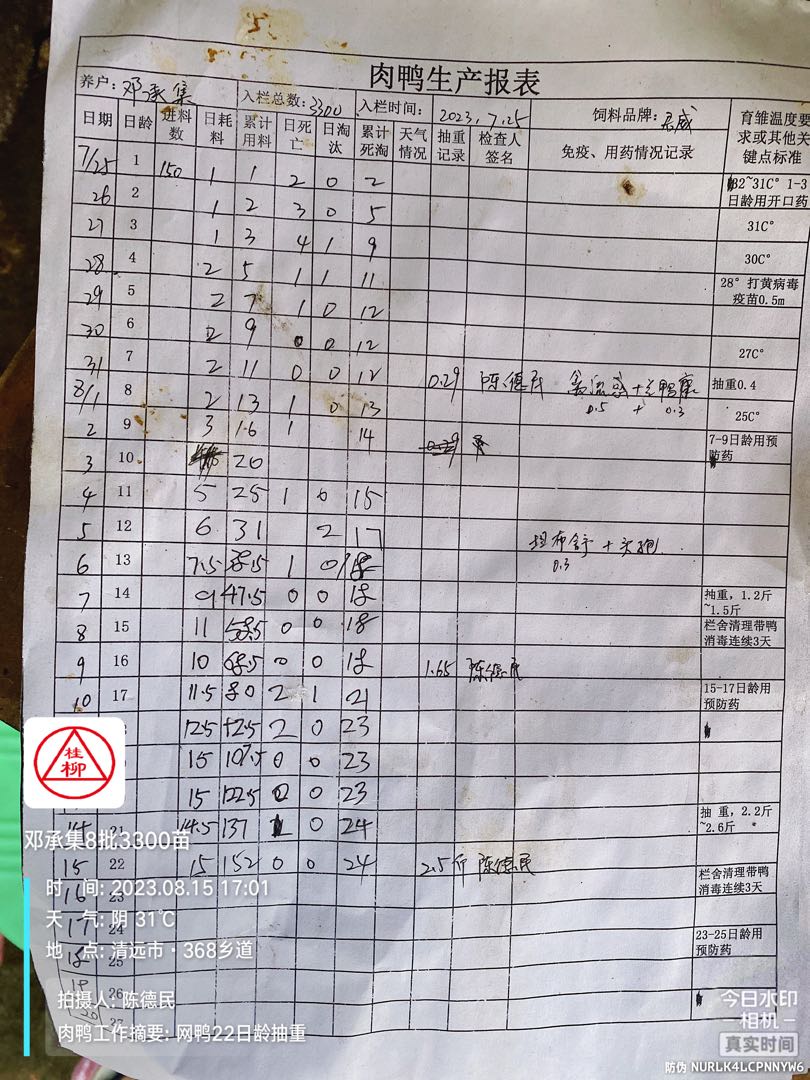 肉鸭生产报表
养户: 邓承集 入栏总数: 3300 入栏时间: 2023.7.25 饲料品牌: 育雏温度要求或其他关键点标准
日期 日龄 进料数 日耗料 累计用料 日死亡 日淘汰 累计死淘 天气情况 抽重记录 检查人签名 免疫、用药情况记录
7/25 1 150 1 1 2 0 2 32~31C° 1-3日龄用开口药
26 2 1 2 3 0 5
27 3 1 3 4 1 9 31C°
28 4 2 5 1 1 11 30C°
29 5 2 7 1 0 12 28° 打黄病毒疫苗0.5m
30 6 2 9 0 0 12
31 7 2 11 0 0 12 0.29 陈德民 27C°
8/1 8 2 13 1 0 13 0.5 + 0.3 抽重0.4
2 9 3 16 1 14 25C°
3 10 20 7-9日龄用预防药
4 11 5 25 1 0 15
5 12 6 31 2 17
6 13 7.5 38.5 1 0 18 0.3
7 14 9 47.5 0 0 18 抽重, 1.2斤~1.5斤
8 15 11 58.5 0 0 18 栏舍清理带鸭消毒连续3天
9 16 10 68.5 0 0 18 1.65 陈德民
10 17 11.5 80 2 1 21 15-17日龄用预防药
12.5 92.5 2 0 23
15 107.5 0 0 23
15 122.5 0 0 23
14 21 14.5 137 1 0 24 抽 重, 2.2斤~2.6斤
15 22 15 152 0 0 24 2.5斤 陈德民 栏舍清理带鸭消毒连续3天
16 23
17 24 23-25日龄用预防药
18 25
19 26
20 27
桂柳
邓承集8批3300苗
时 间: 2023.08.15 17:01
天 气: 阴 31℃
地 点: 清远市·368乡道
拍摄人: 陈德民
肉鸭工作摘要: 网鸭22日龄抽重
今日水印
相机
真实时间
防伪 NURLK4LCPNNYW6